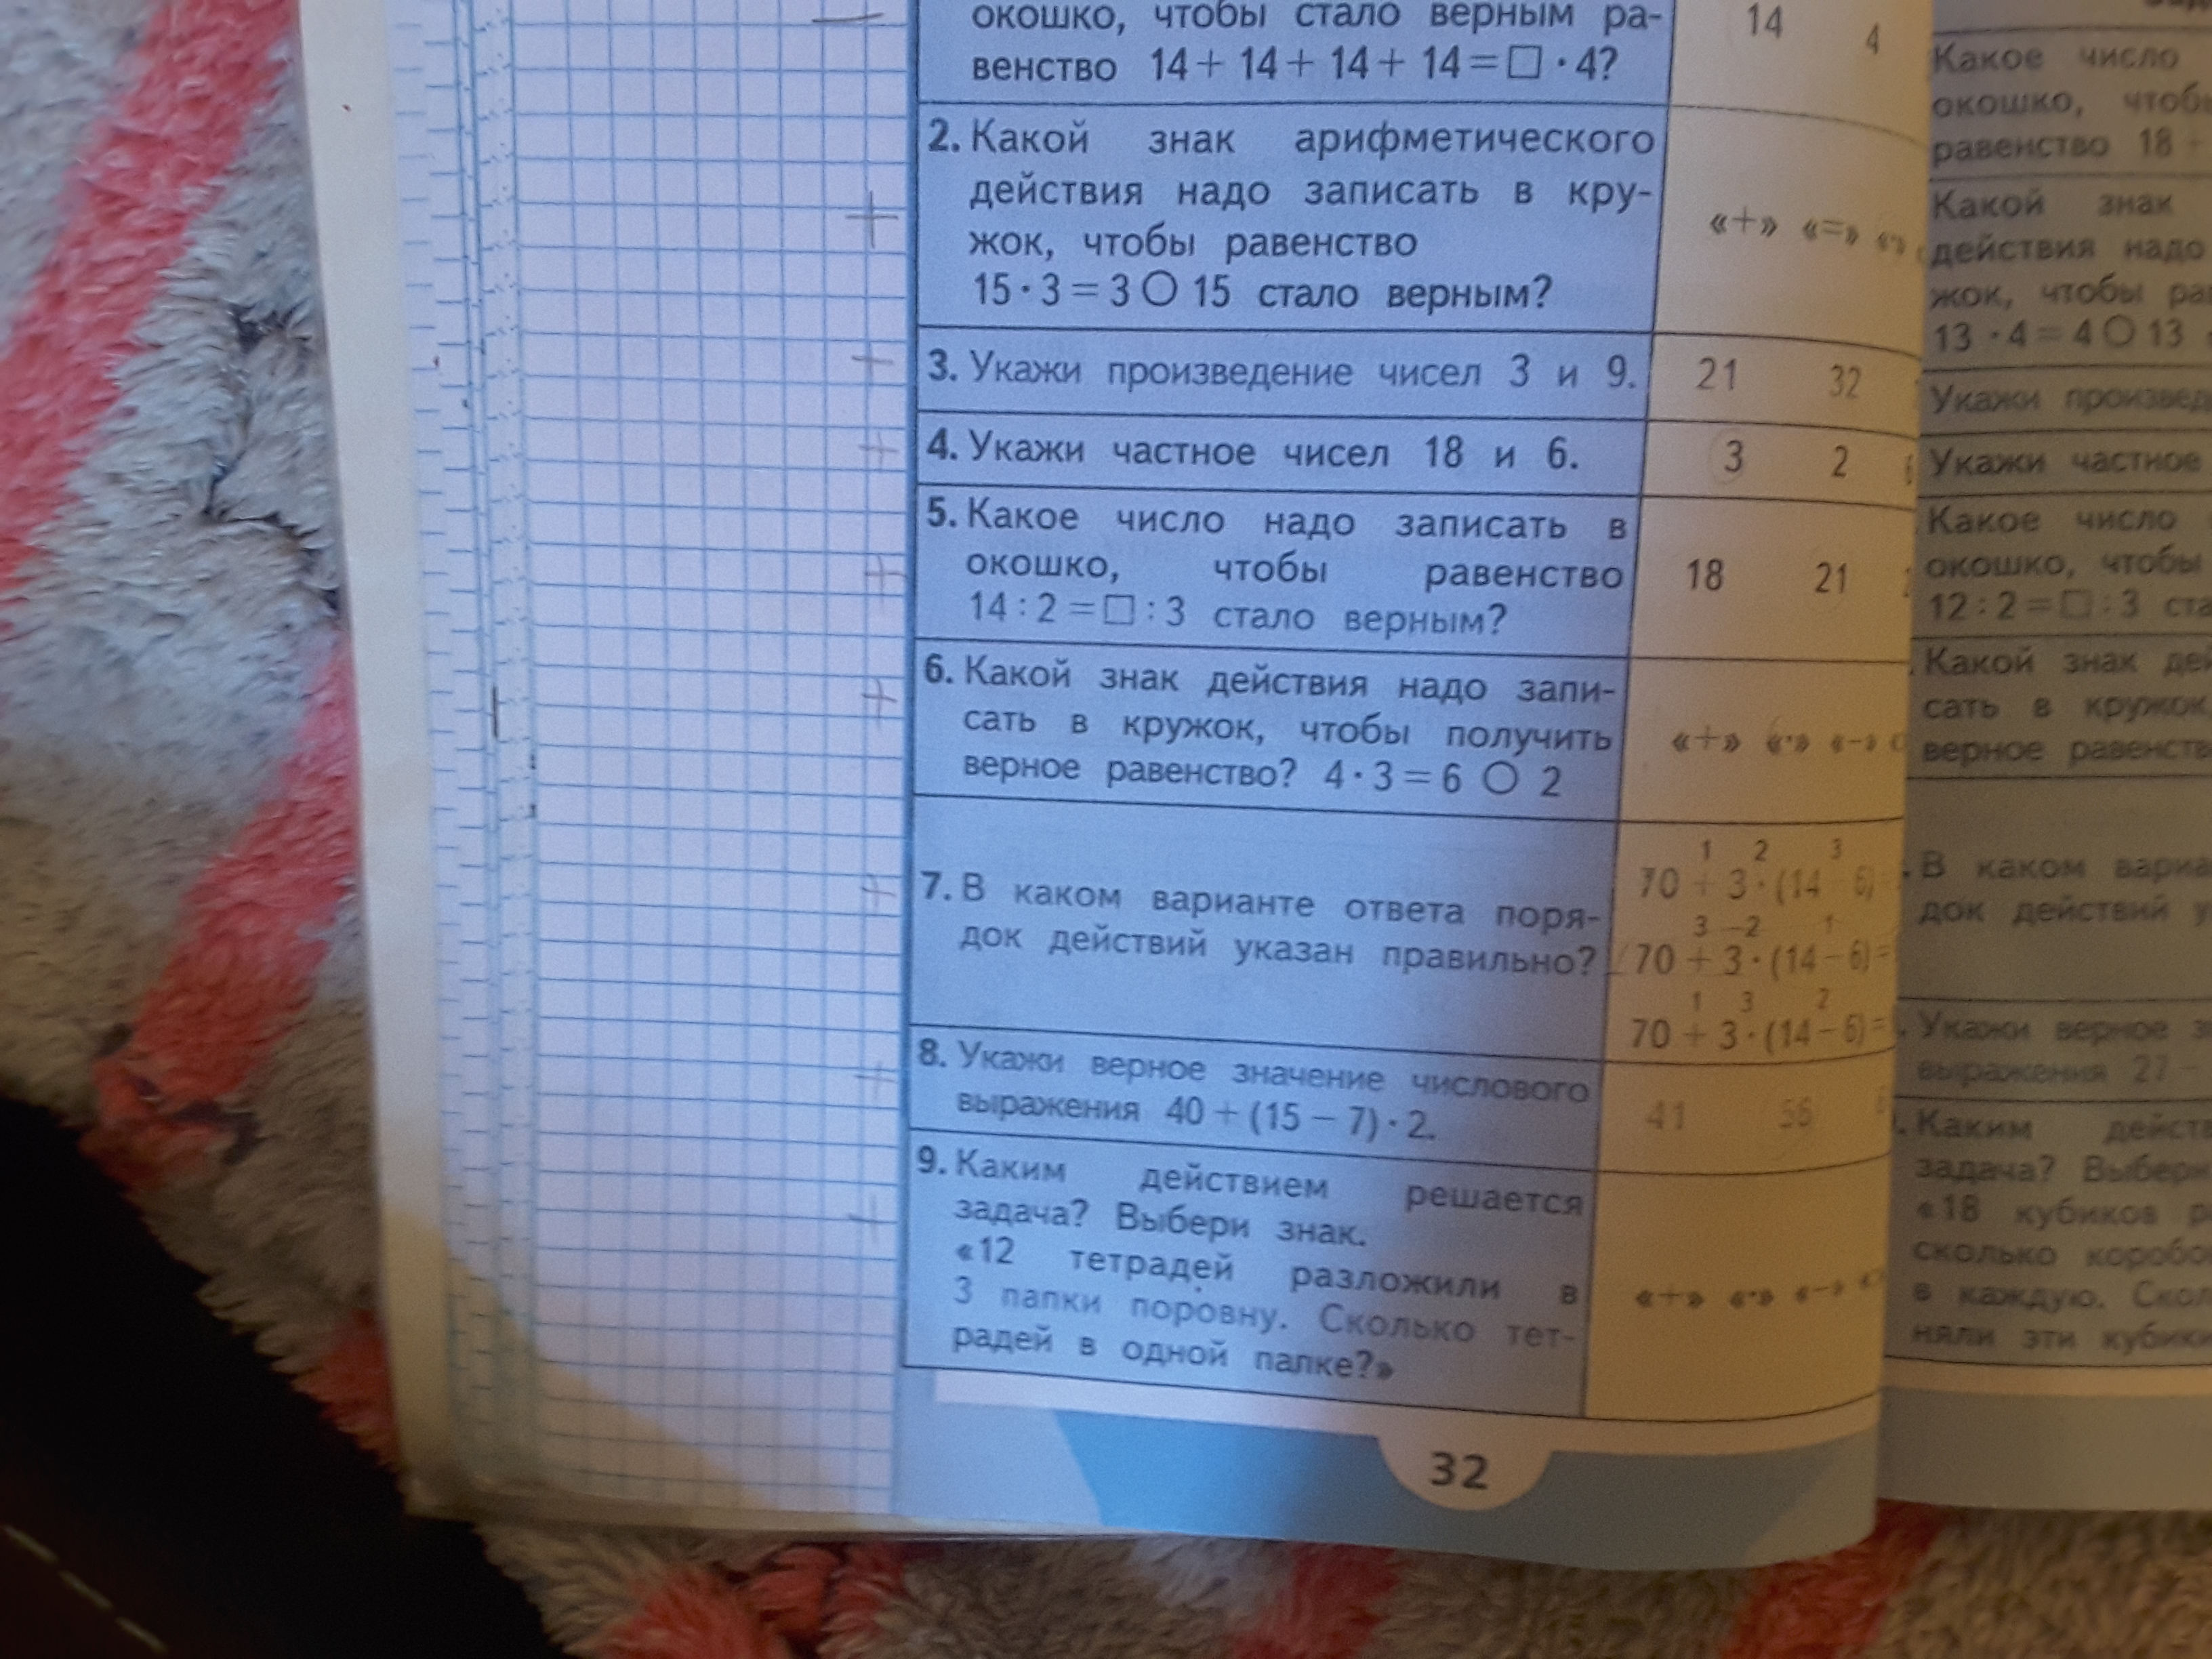 окошко, чтобы стало верным ра-
венство 14 + 14 + 14 + 14 = □ · 4?
14 4
2. Какой знак арифметического
действия надо записать в кру-
жок, чтобы равенство
15 · 3 = 3 ○ 15 стало верным?
«+» «=» «·»
3. Укажи произведение чисел 3 и 9.
21 32
4. Укажи частное чисел 18 и 6.
3 2
5. Какое число надо записать в
окошко, чтобы равенство
14 : 2 = □ : 3 стало верным?
18 21
6. Какой знак действия надо запи-
сать в кружок, чтобы получить
верное равенство? 4 · 3 = 6 ○ 2
«+» «·» «−»
7. В каком варианте ответа поря-
док действий указан правильно?
1 2 3
70 + 3 · (14 − 6)
3 2 1
70 + 3 · (14 − 6) =
1 3 2
70 + 3 · (14 − 6) =
8. Укажи верное значение числового
выражения 40 + (15 − 7) · 2.
41 56
9. Каким действием решается
задача? Выбери знак.
«12 тетрадей разложили в
3 папки поровну. Сколько тет-
радей в одной папке?»
«+» «·» «−»
32
Какое число
окошко, чтоб
равенство 18
Какой знак
действия надо
жок, чтобы ра
13 · 4 = 4 ○ 13
Укажи произвед
Укажи частное
Какое число
окошко, чтобы
12 : 2 = □ : 3 ста
Какой знак дей
сать в кружок
верное равенств
В каком вариа
док действий у
Укажи верное з
выражения 27 −
Каким действ
задача? Выбери
«18 кубиков р
сколько коробо
в каждую. Скол
няли эти кубик